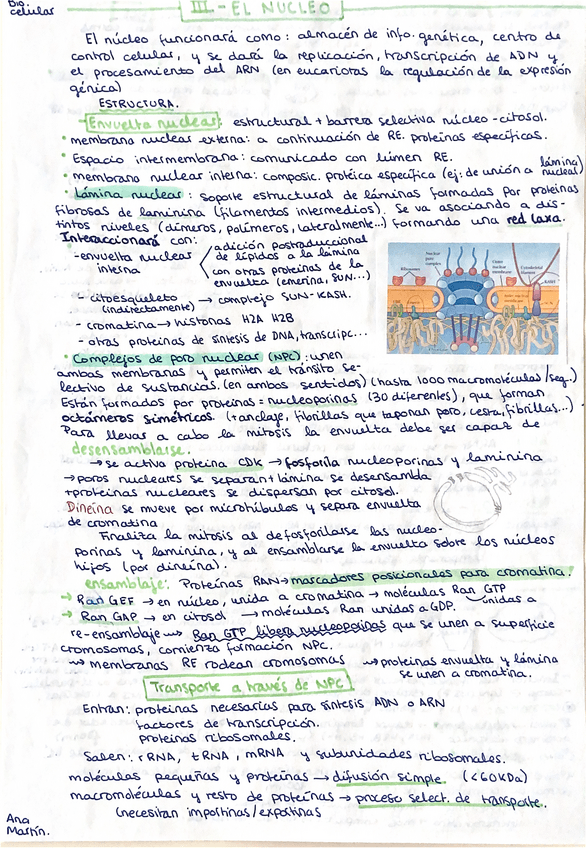 Bio.
celular
III.- EL NÚCLEO
El núcleo funcionará como: almacén de info. genética, centro de
control celular, y se dará la replicación, transcripción de ADN y
el procesamiento del ARN (en eucariotas la regulación de la expresión
génica)
ESTRUCTURA.
-Envuelta nuclear: estructural + barrera selectiva núcleo-citosol.
• membrana nuclear externa: a continuación de RE. proteínas específicas.
• Espacio intermembrana: comunicado con lúmen RE.
• membrana nuclear interna: composic. protéica específica (ej: de unión a lámina nuclear)
• Lámina nuclear: soporte estructural de láminas formadas por proteínas
fibrosas de laminina (filamentos intermedios). Se va asociando a dis-
tintos niveles (dímeros, polímeros, lateralmente...) formando una red laxa.
Interaccionará con:
-envuelta nuclear interna
adición postraduccional
de lípidos a la lámina
con otras proteínas de la
envuelta (emerina, SUN...)
- citoesqueleto → complejo SUN-KASH.
(indirectamente)
- cromatina → histonas H2A H2B
- otras proteínas de síntesis de DNA, transcripc...
• Complejos de poro nuclear (NPC): unen
ambas membranas y permiten el tránsito se-
lectivo de sustancias. (en ambos sentidos) (hasta 1000 macromoléculas/seg.)
Están formados por proteínas = nucleoporinas (30 diferentes), que forman
octámeros simétricos. (+anclaje, fibrillas que taponan poro, cesta, fibrillas...)
Para llevar a cabo la mitosis la envuelta debe ser capaz de
desensamblarse.
→ se activa proteína CDK → fosforila nucleoporinas y laminina
→ poros nucleares se separan + lámina se desensambla
+ proteínas nucleares se dispersan por citosol.
Dineína se mueve por microtúbulos y separa envuelta
de cromatina
Finaliza la mitosis al defosforilarse las nucleo-
porinas y laminina, y al ensamblarse la envuelta sobre los núcleos
hijos (por dineína).
ensamblaje: Proteínas RAN → marcadores posicionales para cromatina.
→ Ran GEF → en núcleo, unida a cromatina → moléculas Ran GTP
unidas a
→ Ran GAP → en citosol → moléculas Ran unidas a GDP.
re-ensamblaje → Ran GTP libera nucleoporinas que se unen a superficie
cromosomas, comienza formación NPC.
→ membranas RE rodean cromosomas → proteínas envuelta y lámina
se unen a cromatina.
Transporte a través de NPC
Entran: proteínas necesarias para síntesis ADN o ARN
factores de transcripción.
proteínas ribosomales.
Salen: rRNA, tRNA, mRNA y subunidades ribosomales.
moléculas pequeñas y proteínas → difusión simple. (<60KDa)
macromoléculas y resto de proteínas → proceso select. de transporte.
(necesitan importinas/exportinas
Ana
Martín.